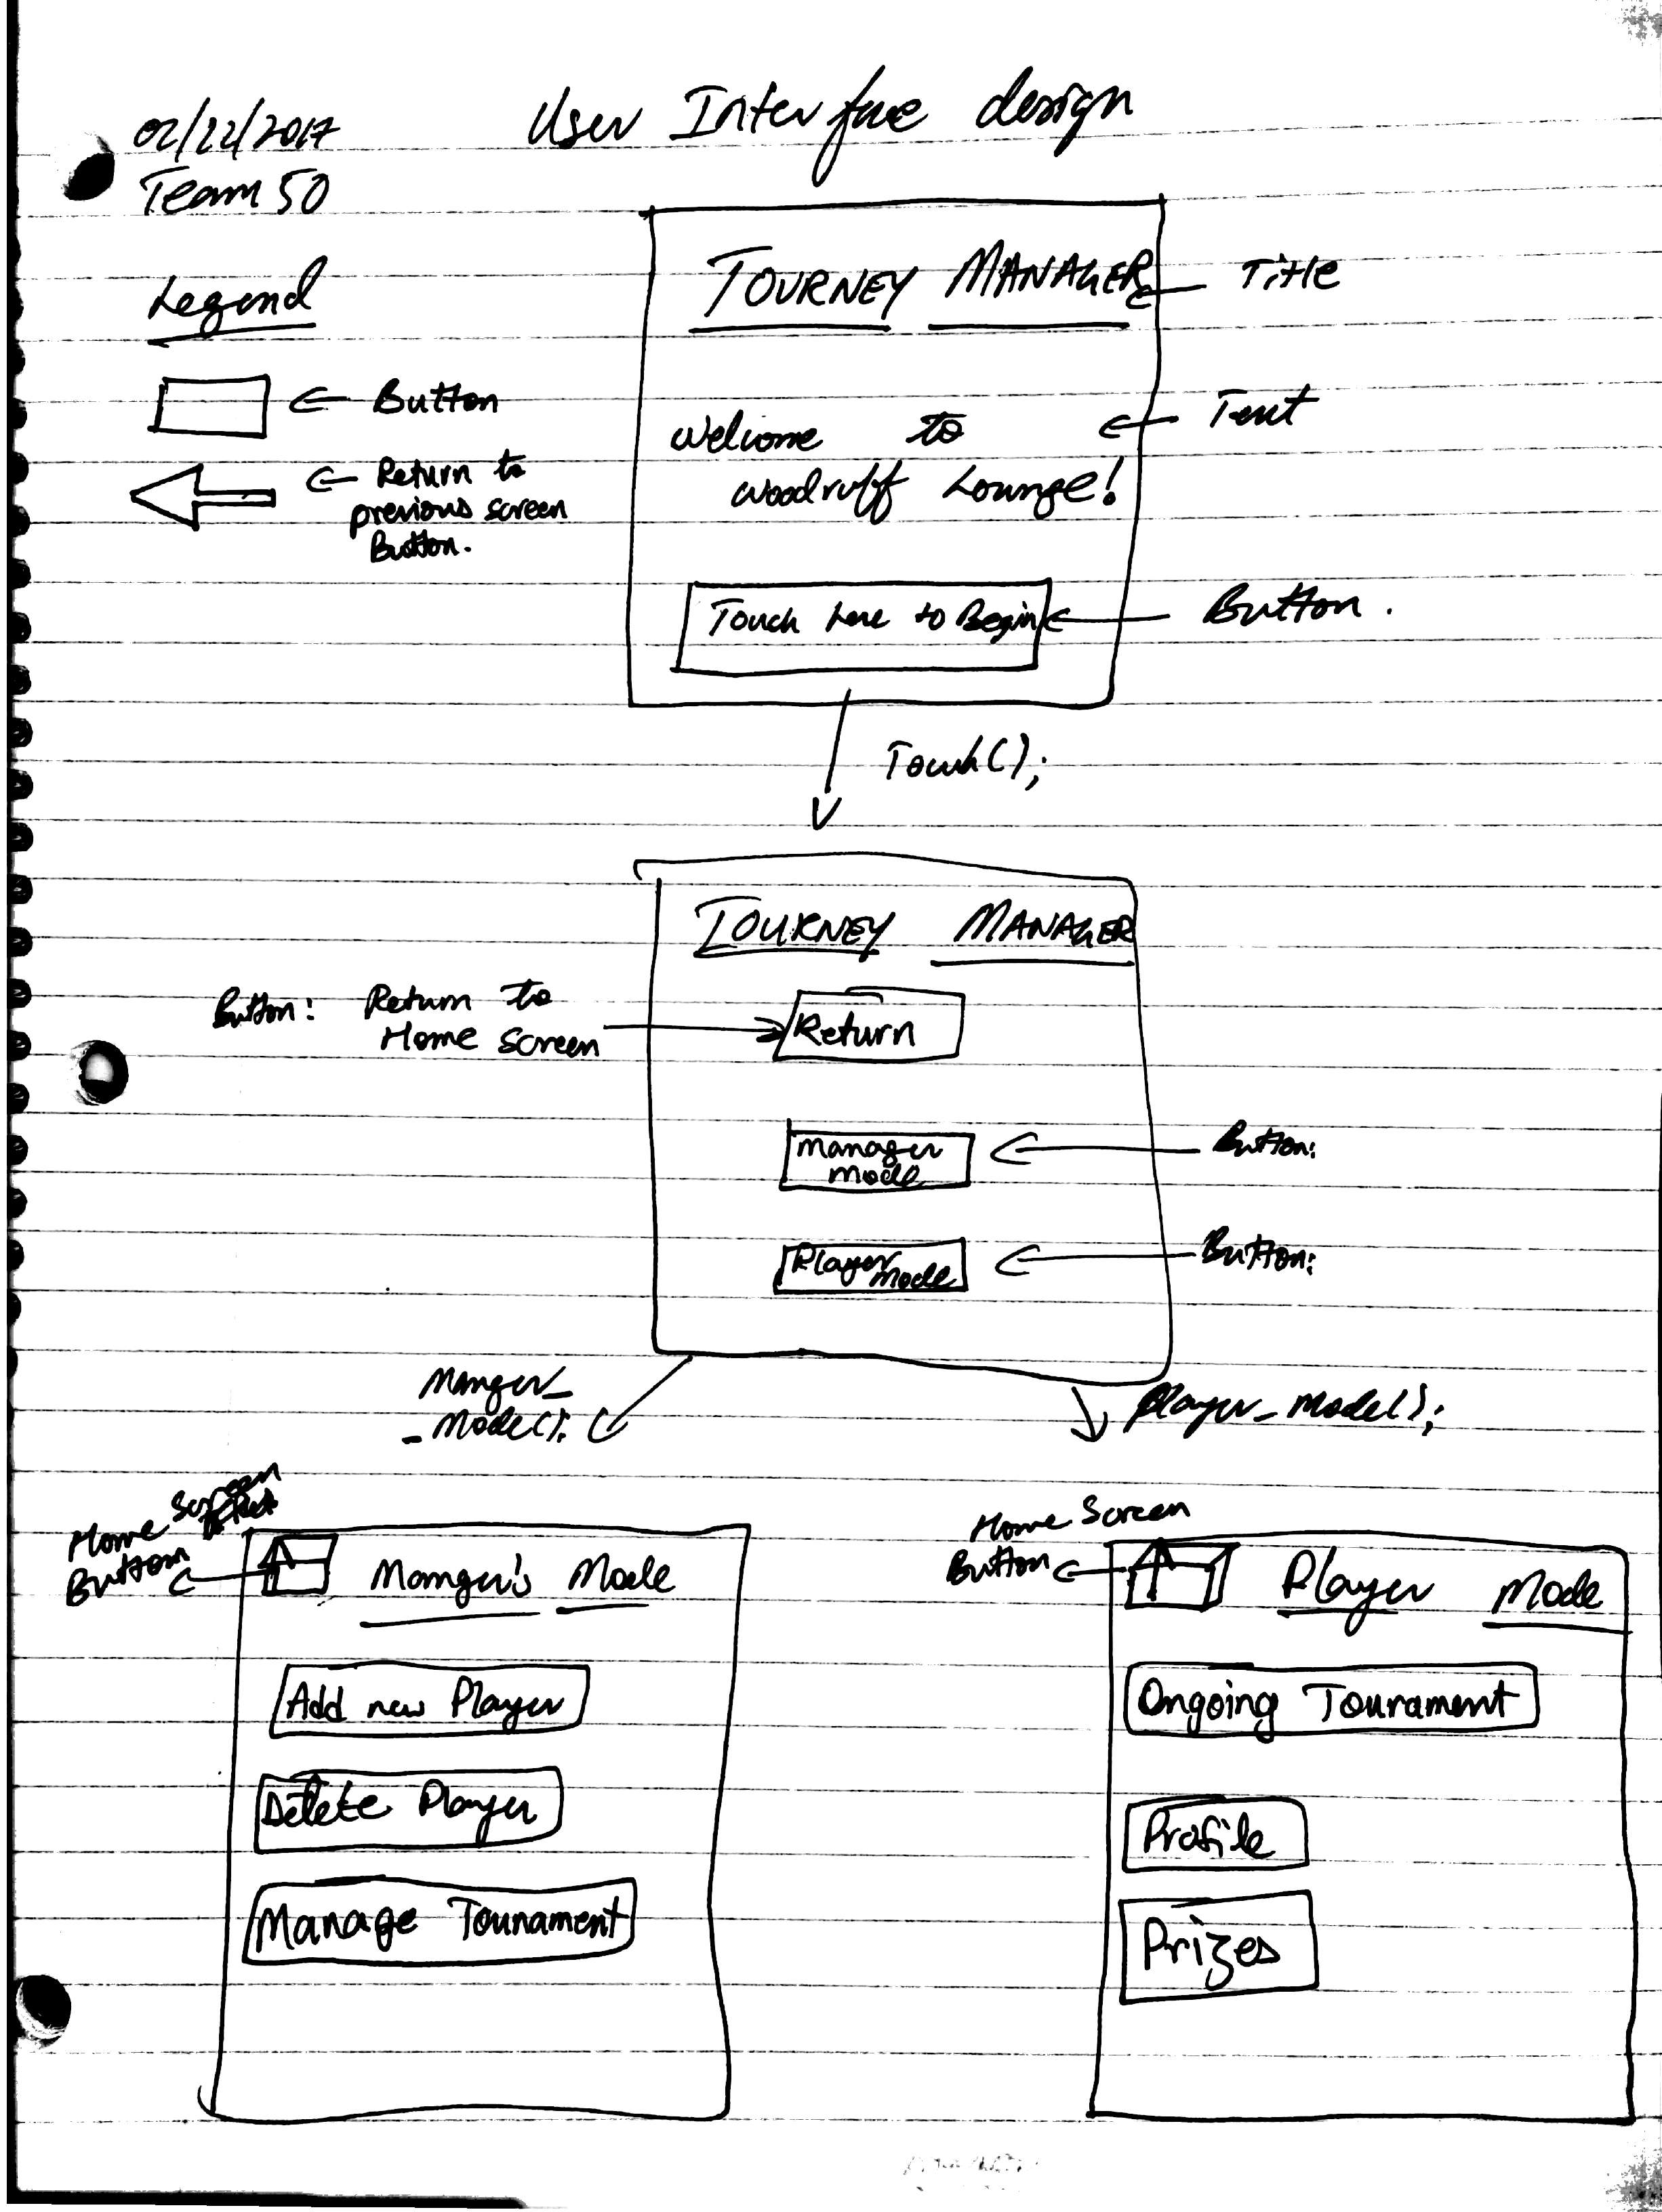 02/22/2017
User Interface design
Team 50
Legend
Button
Return to
previous screen
Button.
TOURNEY MANAGER
Title
Welcome to
Woodruff Lounge!
Text
Touch here to Begin
Button.
Touch();
TOURNEY MANAGER
Button: Return to
Home screen
Return
manager
mode
Button:
Player
mode
Button:
Manger_
_Mode();
Player_Mode();
Home Screen
Button
Manger's Mode
Add new Player
Delete Player
Manage Tounament
Home Screen
Button
Player Mode
Ongoing Tourament
Profile
Prizes